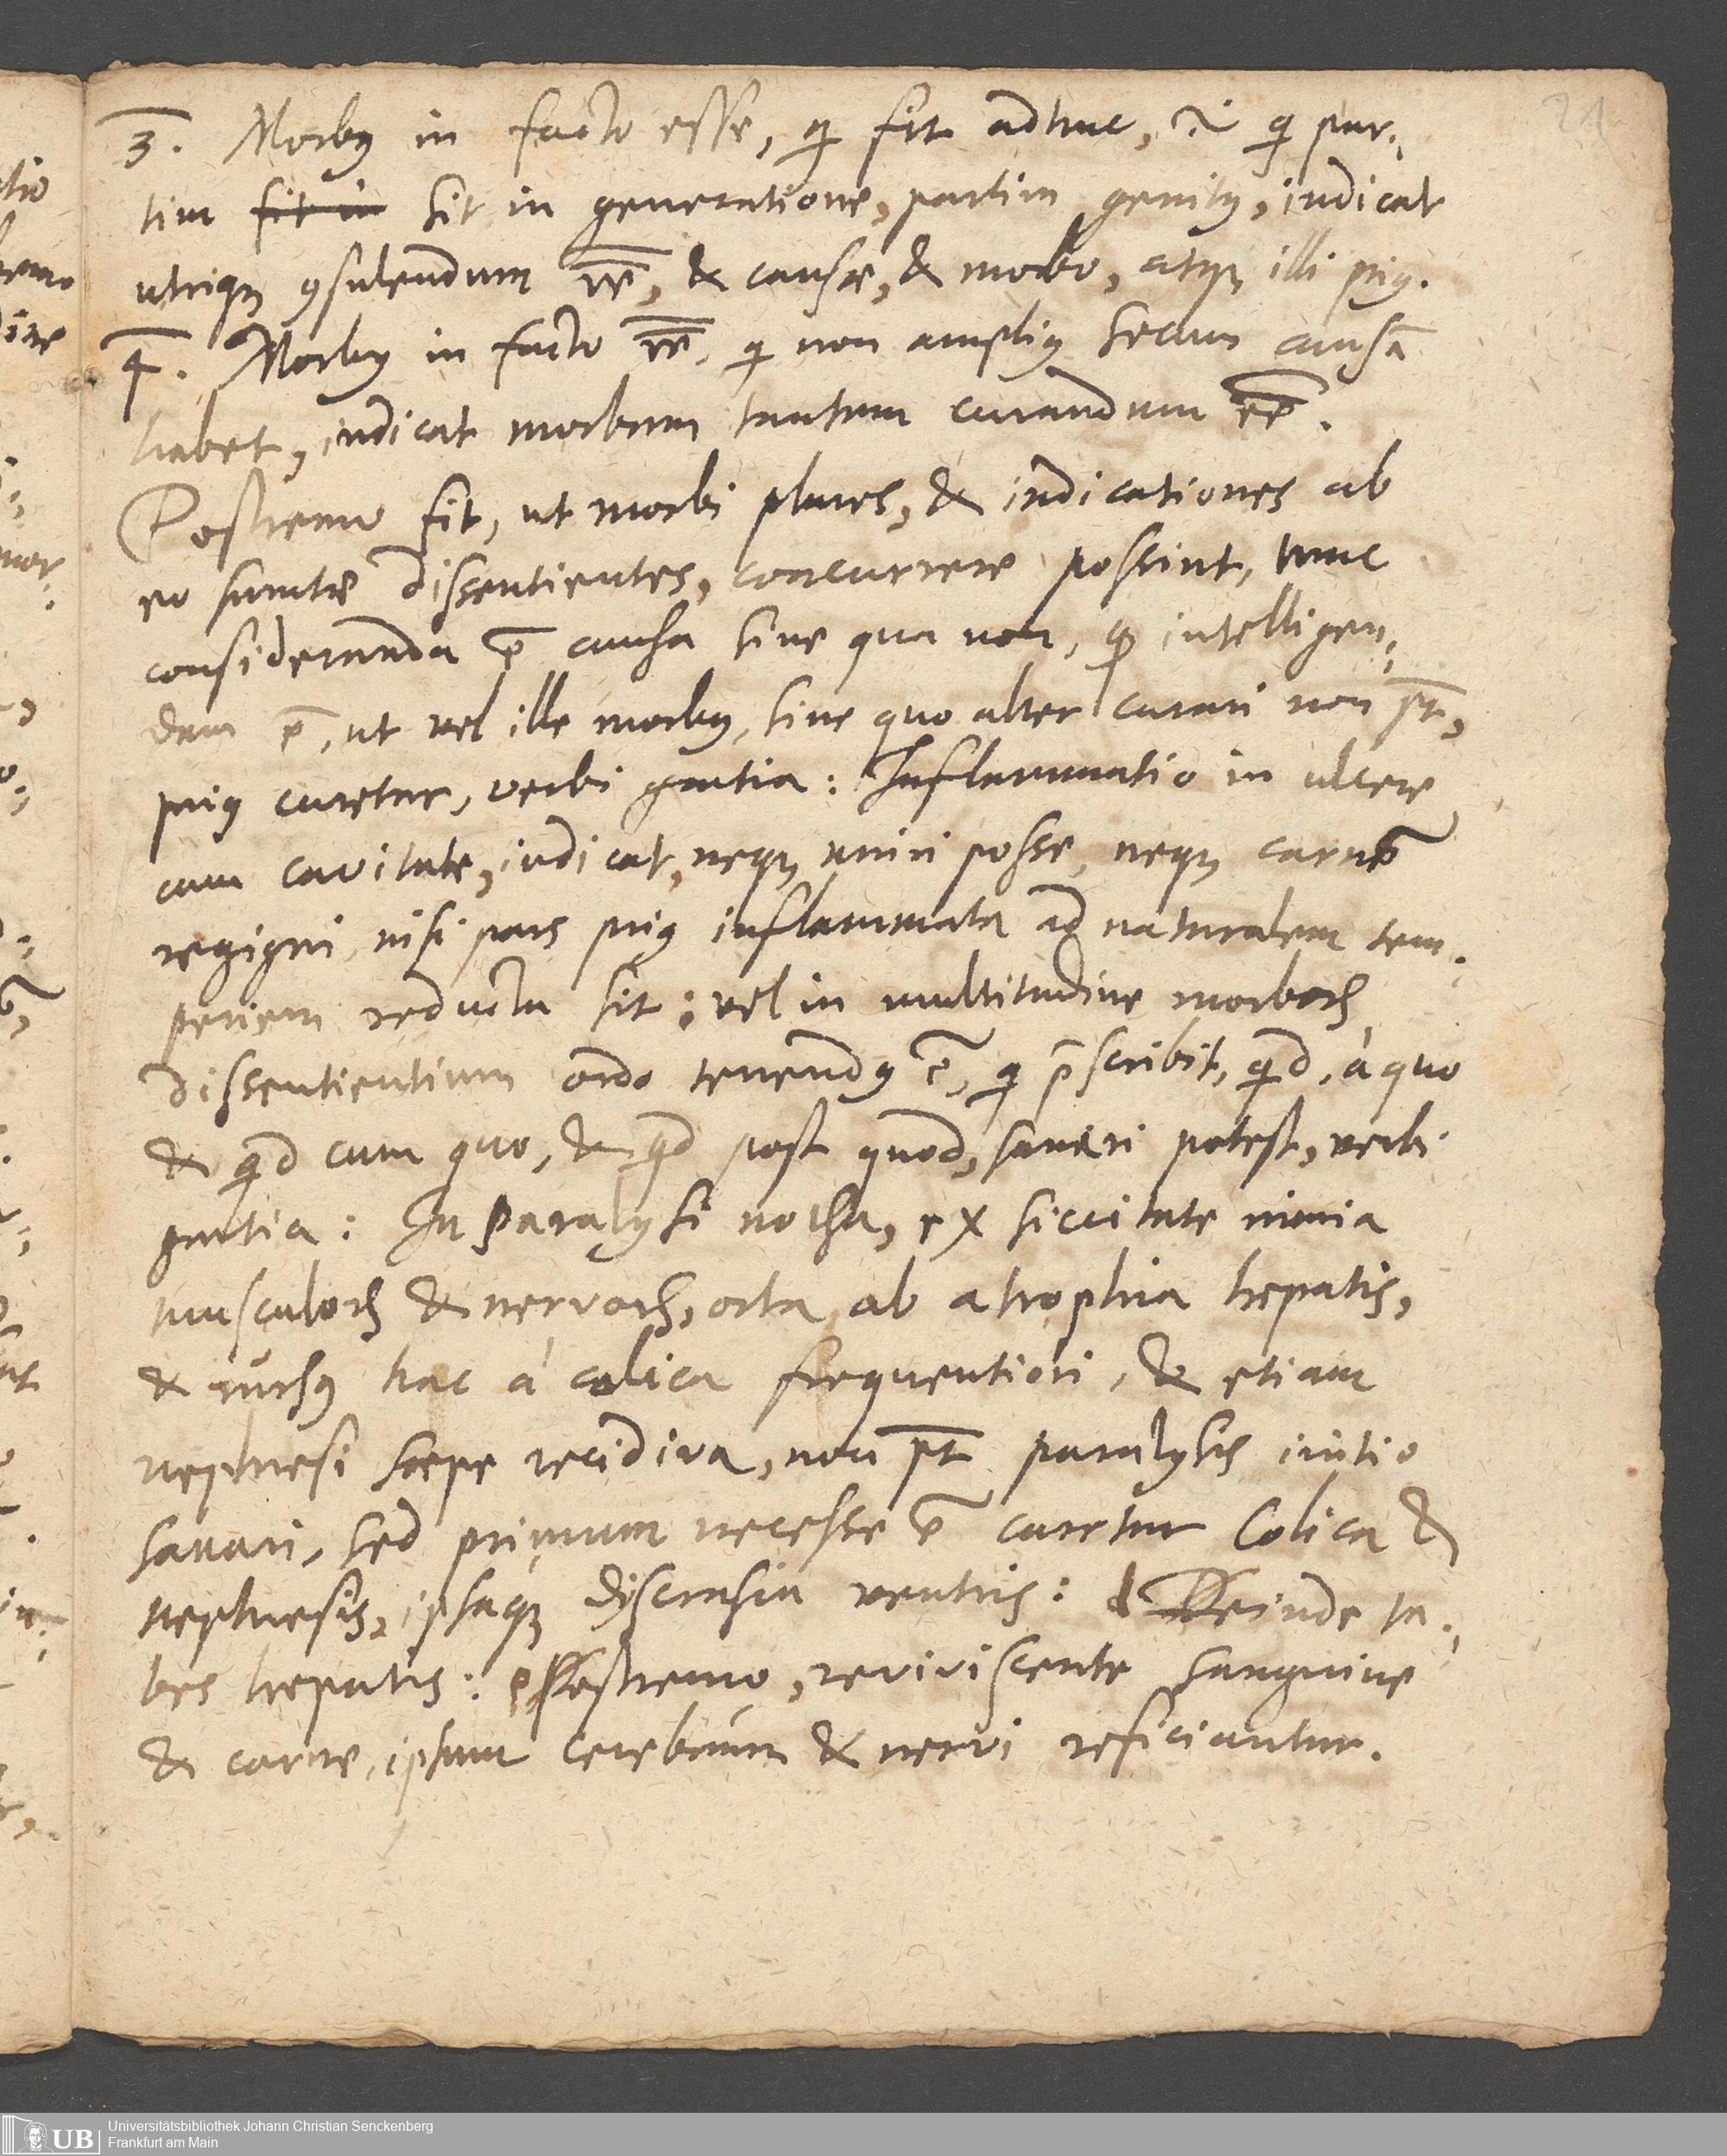 21
3. Morbꝰ in facto esse, qi fit adhuc, .i. qi par-
tim fit in sit in generatione, partim genitꝰ, indicat
utriqꝫ ꝯsulendum ee̅, & causæ, & morbo, atqꝫ illi priꝰ.
4. Morbꝰ in facto ee̅, qi non ampliꝰ secum causā
habet, indicat morbum tantum curandum ee̅.
Postremo fit, ut morbi plures, & indicationes ab
eo sumtæ dissentientes, concurrere possint, tunc
consideranda ē causa sine qua non, qd intelligen-
dam ē, ut vel ille morbꝰ, sine quo alter curari non pt̄,
priꝰ curetur, verbi gratia: Inflammatio in ulcere
cum cavitate, indicat, neqꝫ uniri posse, neqꝫ carnē
regigni, nisi pars priꝰ inflammata ad naturalem tem-
periem reducta sit: vel in multitudine morboꝝ
dissentientium ordo tenendꝰ ē, qi p̄scribit, qid, à quo
& qid cum quo, & qid post quod, sanari potest, verbi
gratia: In paralysi notha, ex siccitate nimia
musculoꝝ & nervoꝝ, orta, ab atrophia hepatis,
& rursꝰ hac à colica frequentiori, & etiam
nephresi sæpe recidiva, non pt̄ paralysis initio
sanari, sed primum necesse ē curetur Colica &
nephresis, ipsaqꝫ discrasia ventris: deinde ta-
bes hepatis: postremo, reviviscente sanguine
& carne, ipsum cerebrum & nervi reficiantur.
UB Universitätsbibliothek Johann Christian Senckenberg
Frankfurt am Main